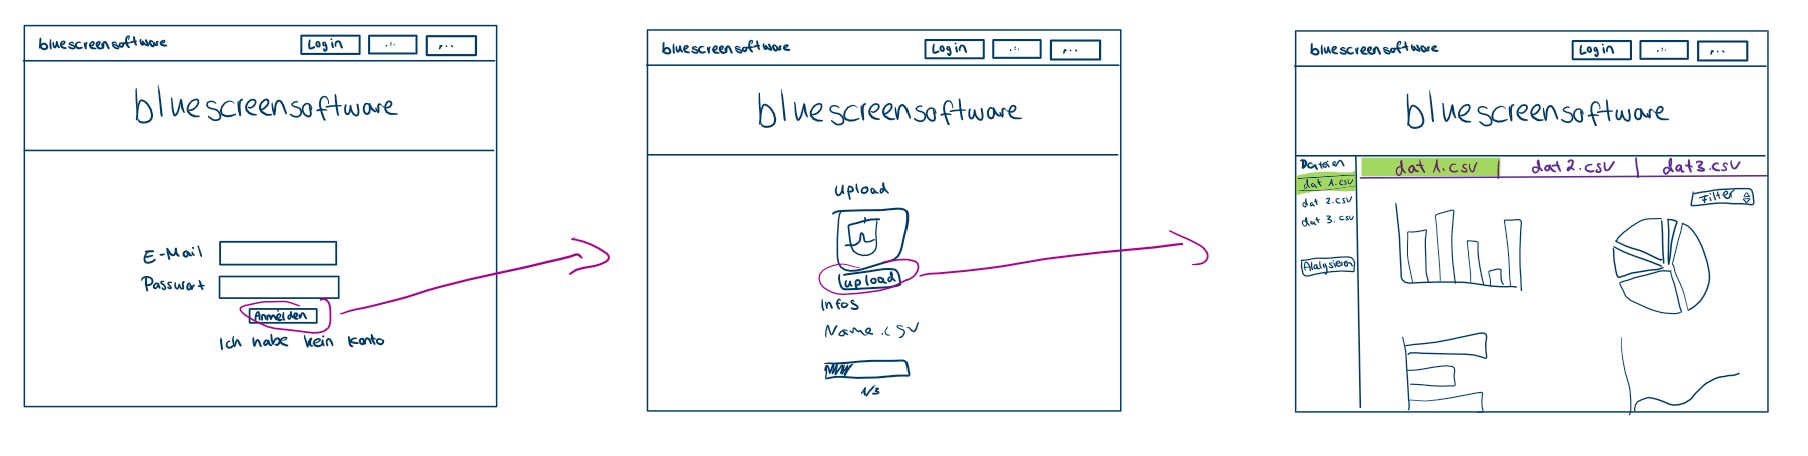 bluescreensoftware Login ... ...
bluescreensoftware
E-Mail
Passwort
Anmelden
Ich habe kein Konto
bluescreensoftware Login ... ...
bluescreensoftware
upload
upload
Infos
Name.csv
1/3
bluescreensoftware Login ... ...
bluescreensoftware
Dateien
dat 1.csv
dat 2.csv
dat 3.csv
Analysieren
dat 1.csv dat 2.csv dat3.csv
Filter